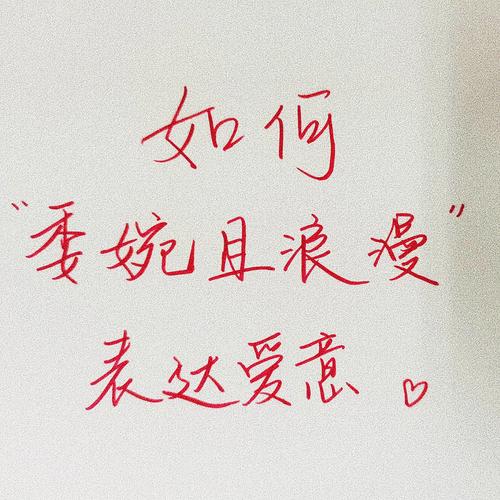 如何
"委婉且浪漫"
表达爱意♡